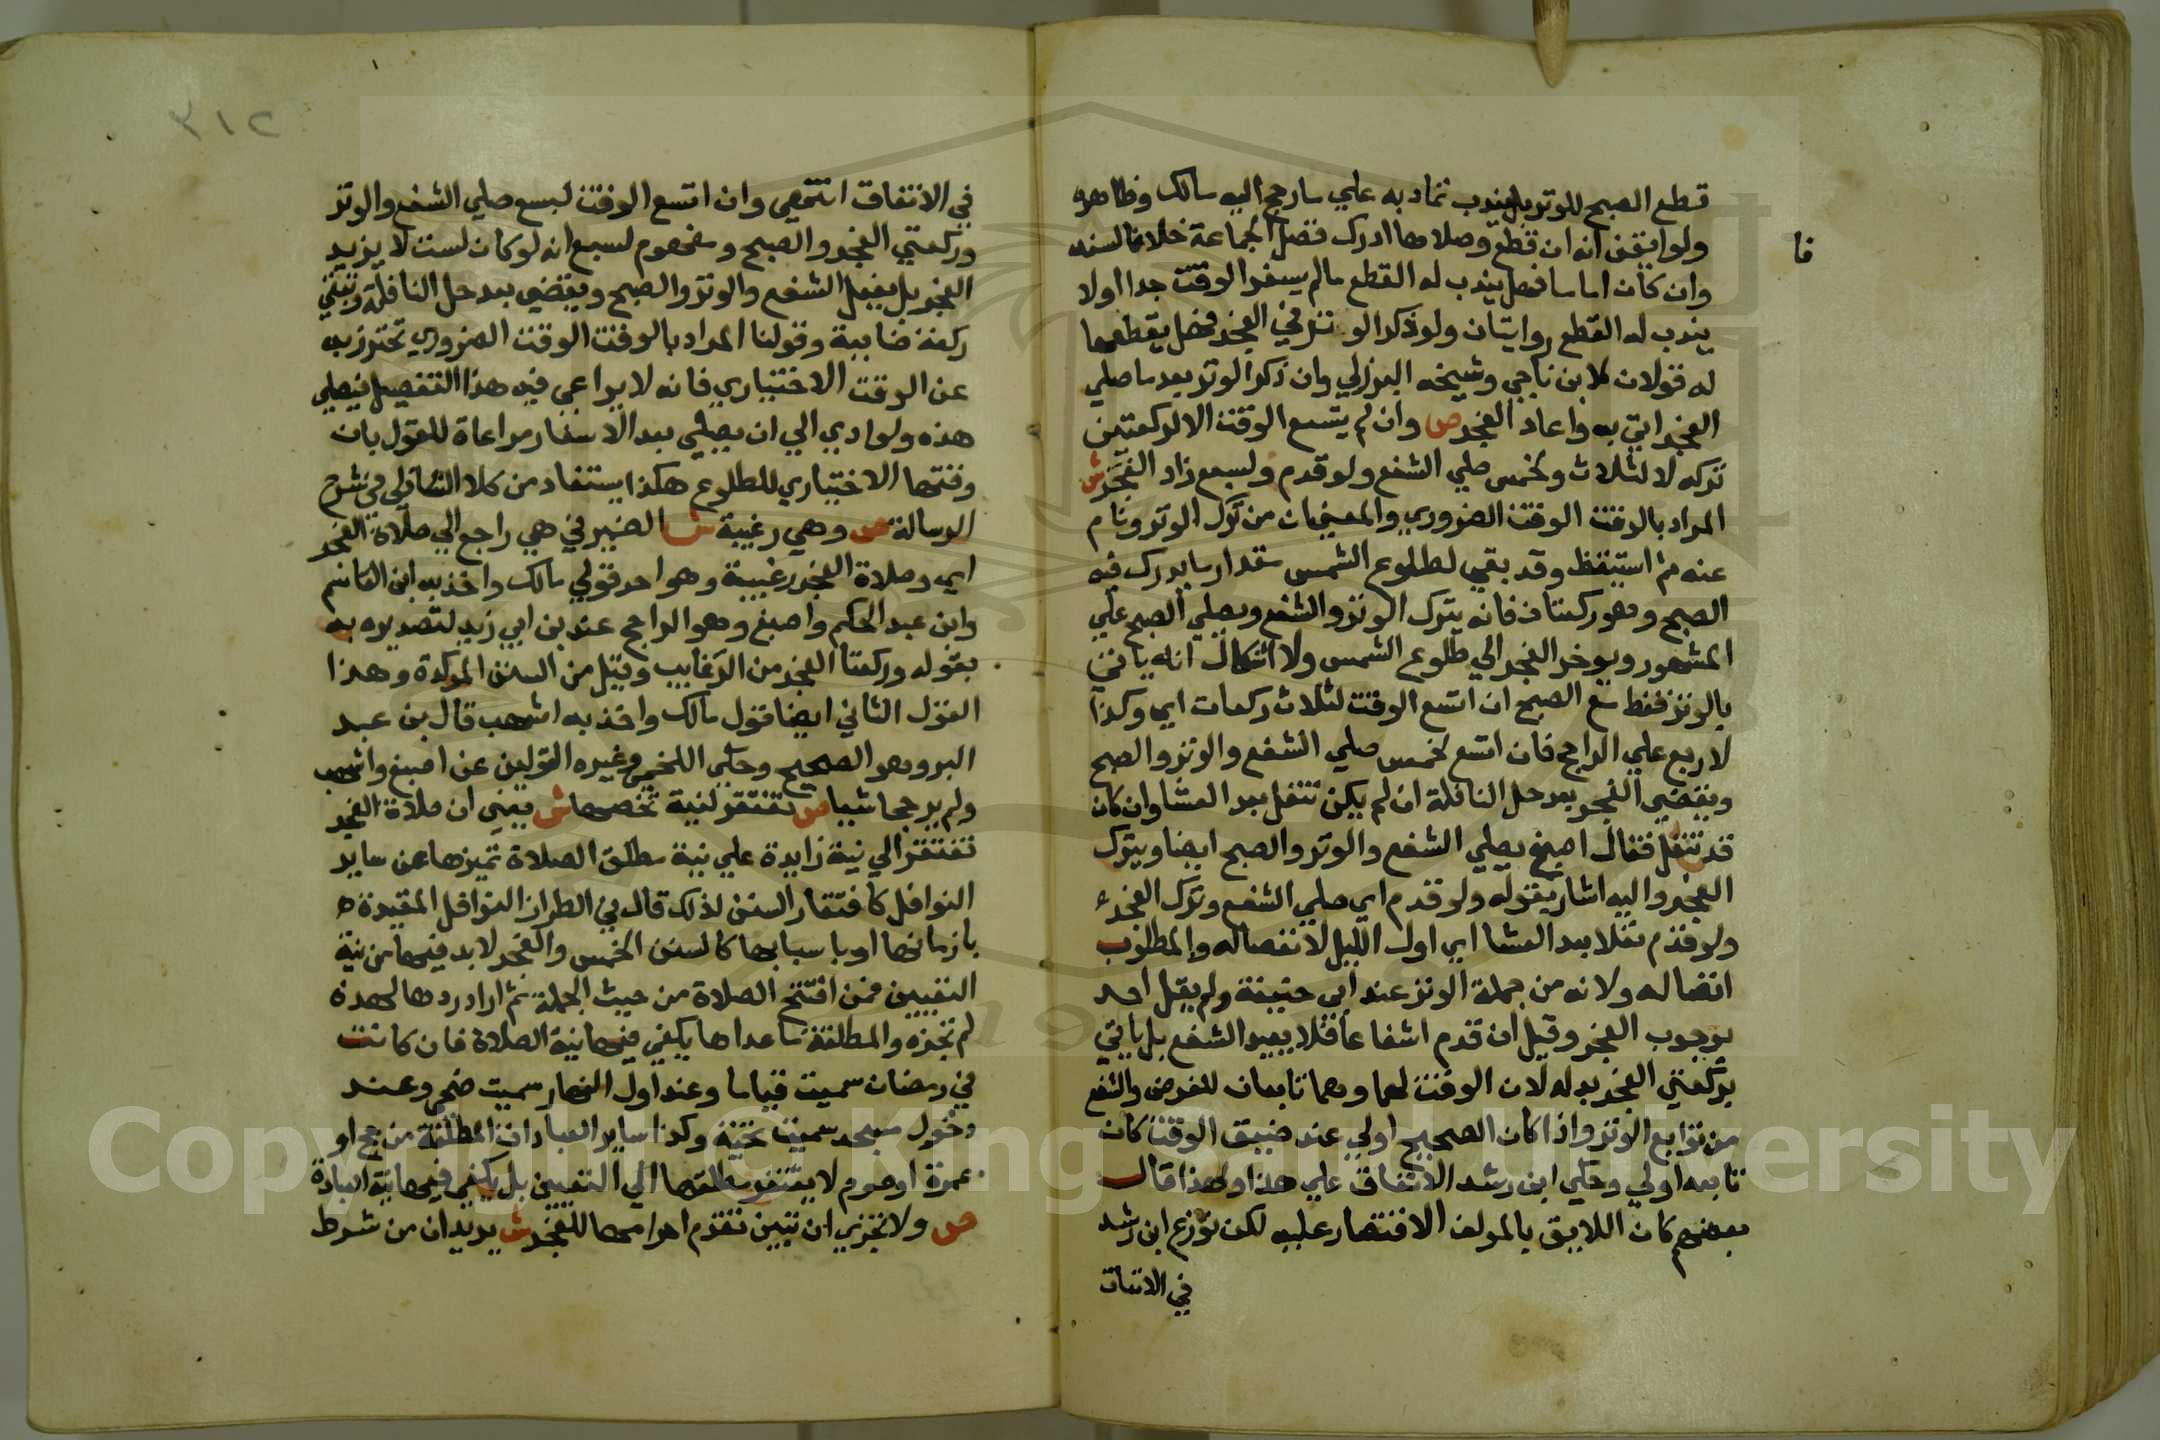 قطع الصبح للوتر بل يندب تماديه علي ما رجع اليه مالك وظاهره
ولو ايقن انه ان قطع وصلاها ادرك فضل الجماعة خلافا لسند
وان كان اماما فهل يندب له القطع ما لم يسفر الوقت جدا اولا
يندب له القطع روايتان ولو ذكر الوتر في الفجر فهل يقطعها
له قولان لابن ناجي وشيخه البرزلي وان ذكر الوتر بعد ما صلي
الفجر اتي به واعاد الفجر ص وان لم يتسع الوقت الا لركعتين
تركه لا لثلاث ولخمس صلي الشفع ولو قدم ولسبع زاد الفجر ش
المراد بالوقت الوقت الضروري والمعني ان من ترك الوتر ونام
عنه ثم استيقظ وقد بقي لطلوع الشمس مقدار ما يدرك فيه
الصبح وهو ركعتان فانه يترك الوتر والشفع ويصلي الصبح علي
المشهور ويوخر الفجر الي طلوع الشمس ولا اشكال انه ياتي
بالوتر فقط مع الصبح ان اتسع الوقت لثلاث ركعات اي وكذا
لاربع علي الراجح فان اتسع لخمس صلي الشفع والوتر والصبح
ويقضي الفجر بعد حل النافلة ان لم يكن تنفل بعد العشا وان كان
قد تنفل فقال اصبغ يصلي الشفع والوتر والصبح ايضا ويترك
الفجر واليه اشار بقوله ولو قدم اي صلي الشفع وترك الفجر
ولو قدم نفلا بعد العشا اي اول الليل لانفصاله والمطلوب
اتصاله ولانه من جملة الوتر عند ابي حنيفة ولم يقل احد
بوجوب الفجر وقيل ان قدم اشفاعا فلا يعيد الشفع بل ياتي
بركعتي الفجر بدله لان الوقت لهما وهما تابعان للفرض والشفع
من توابع الوتر واذا كان الصحيح اولي عند ضيق الوقت كان
تابعه اولي وحكي ابن رشد الاتفاق علي هذا ولهذا قال
بعضهم كان اللايق بالمولف الاقتصار عليه لكن نوزع ابن رشد
في الاتفاق
فا
٣١٢
في الاتفاق انتهي وان اتسع الوقت لسبع صلي الشفع والوتر
وركعتي الفجر والصبح ومفهوم لسبع انه لو كان لست لا يزيد
الفجر بل يفعل الشفع والوتر والصبح ويقضي بعد حل النافلة وتبقي
ركعة ضايعة وقولنا المراد بالوقت الوقت الضروري تحترز به
عن الوقت الاختياري فانه لا يراعي فيه هذا التفصيل فيصلي
هذه ولو ادي الي ان يصلي بعد الاسفار مراعاة للقول بان
وقتها الاختياري للطلوع هكذا يستفاد من كلام الشاذلي في شرح
الرسالة ص وهي رغيبة ش الضمير في هي راجع الي صلاة الفجر
اي وصلاة الفجر رغيبة وهو احد قولي مالك واخذ به ابن القاسم
وابن عبد الحكم واصبغ وهو الراجح عند بن ابي زيد لتصديره به
بقوله وركعتا الفجر من الرغايب وقيل من السنن المؤكدة وهذا
القول الثاني ايضا قول مالك واخذ به اشهب قال بن عبد
البر وهو الصحيح وحكي اللخمي وغيره القولين عن اصبغ واشهب
ولم يرجحا شيا ص تفتقر لنية تخصها ش يعني ان صلاة الفجر
تفتقر الي نية زايدة علي نية مطلق الصلاة تميزها عن ساير
النوافل كافتقار السنن لذلك قال في الطراز النوافل المقيدة
بازمانها او باسبابها كالسنن الخمس والفجر لا بد فيها من نية
التعيين فمن افتتح الصلاة من حيث الجملة ثم اراد ردها لهذه
لم تجزه والمطلقة ما عداها يكفي فيها نية الصلاة فان كانت
في رمضان سميت قياما وعند اول النهار سميت ضحي وعند
دخول مسجد سميت تحية وكذا ساير العبادات المطلقة من حج او
عمرة او صوم لا يفتقر مطلقها الي التعيين بل يكفي فيها نية العبادة
ص ولا تجزي ان تبين تقدم احرامها للفجر ش يريد ان من شرط
Copyright © King Saud University